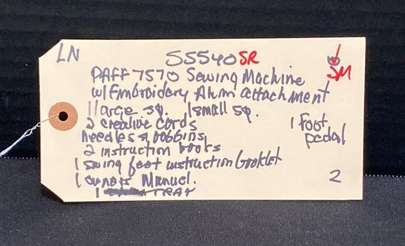 LN SS540 SR
PAFF 7570 Sewing Machine SM
w/ Embroidery Alum attachment
1 large sq. 1 small sq.
2 creative cards 1 Foot
needles & bobbins pedal
2 instruction books
1 swing foot instruction booklet
1 owners Manuel. 2
1 TRAY